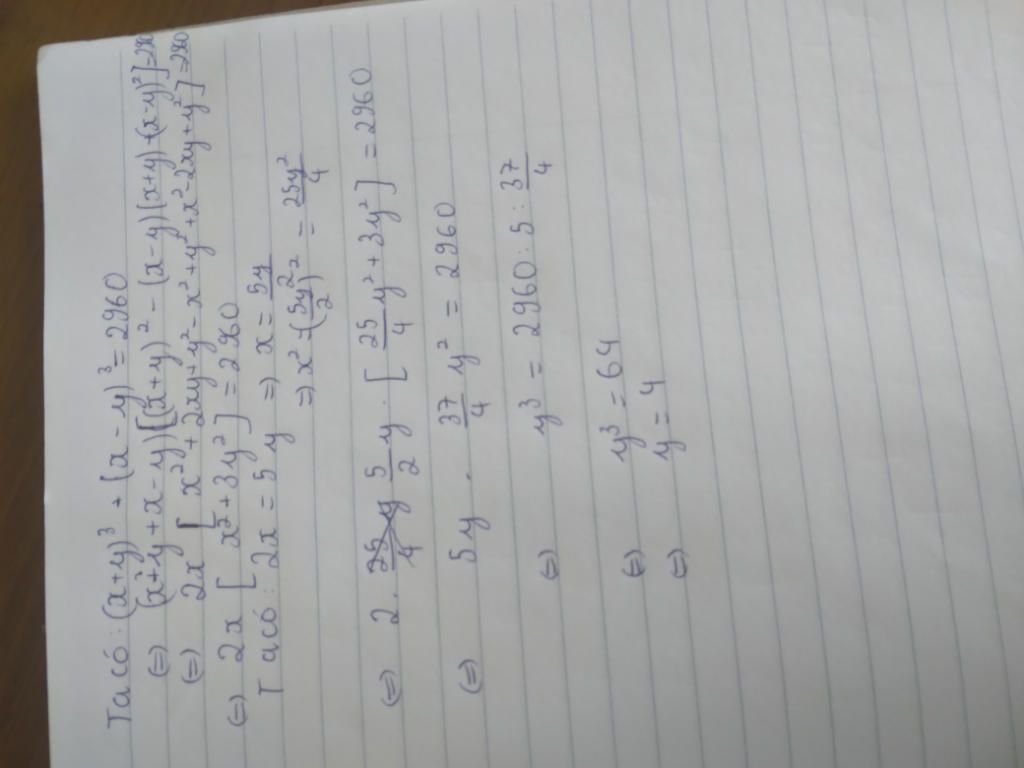 Ta có: (x+y)³ + (x - y)³ = 2960
(=) (x+y + x - y) [(x+y)² - (x - y)(x+y) + (x - y)²] = 2960
(=) 2x [x² + 2xy + y² - x² + y² + x² - 2xy + y²] = 2960
(=) 2x [x² + 3y²] = 2960
Ta có: 2x = 5y => x = 5y/2
=> x² = (5y/2)² = 25y²/4
(=) 2 . 5/2 y . [25/4 y² + 3y²] = 2960
(=) 5y . 37/4 y² = 2960
(=) y³ = 2960 : 5 : 37/4
(=) y³ = 64
(=) y = 4